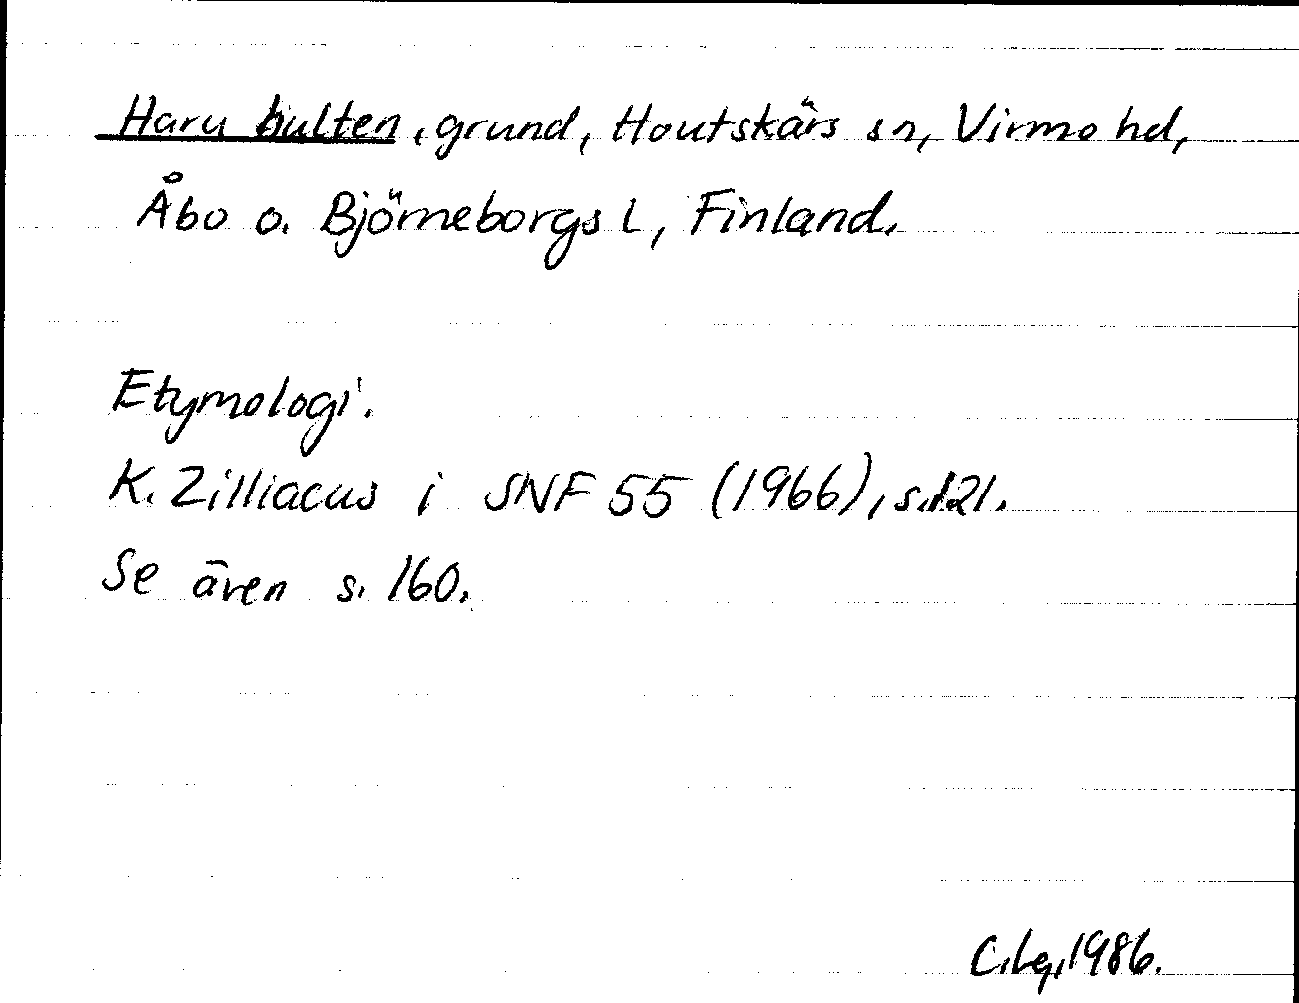 Haru hulten, grund, Houtskärs sn, Virmo hd,
Åbo o. Björneborgs l, Finland.
Etymologi.
K. Zilliacus i SNF 55 (1966), s. 121.
Se även s. 160.
C. Lg, 1986.